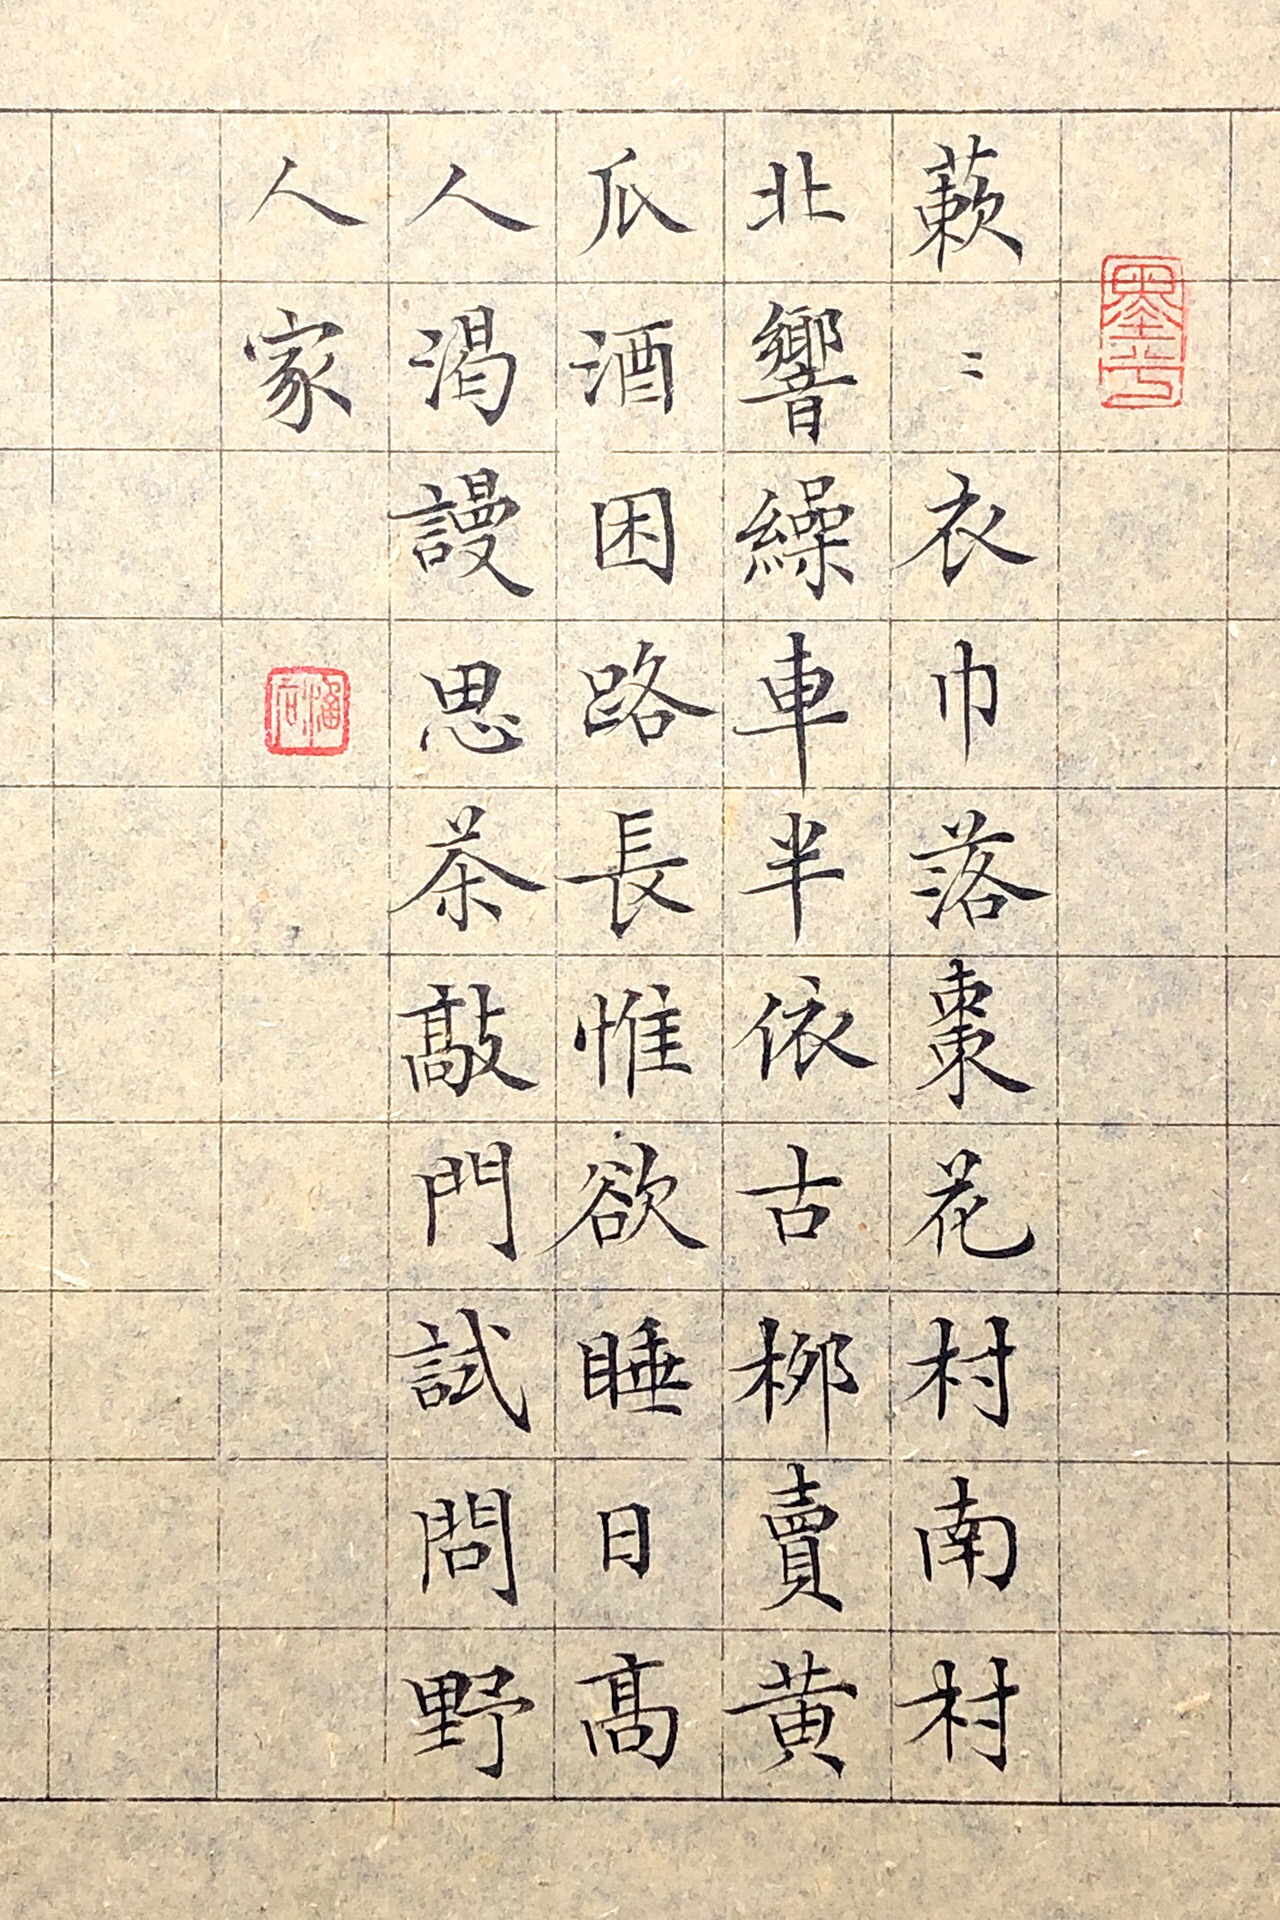 蔌〻衣巾落棗花村南村
北響繰車半依古栁賣黄
瓜酒困路長惟欲睡日髙
人渴謾思茶敲門試問野
人家